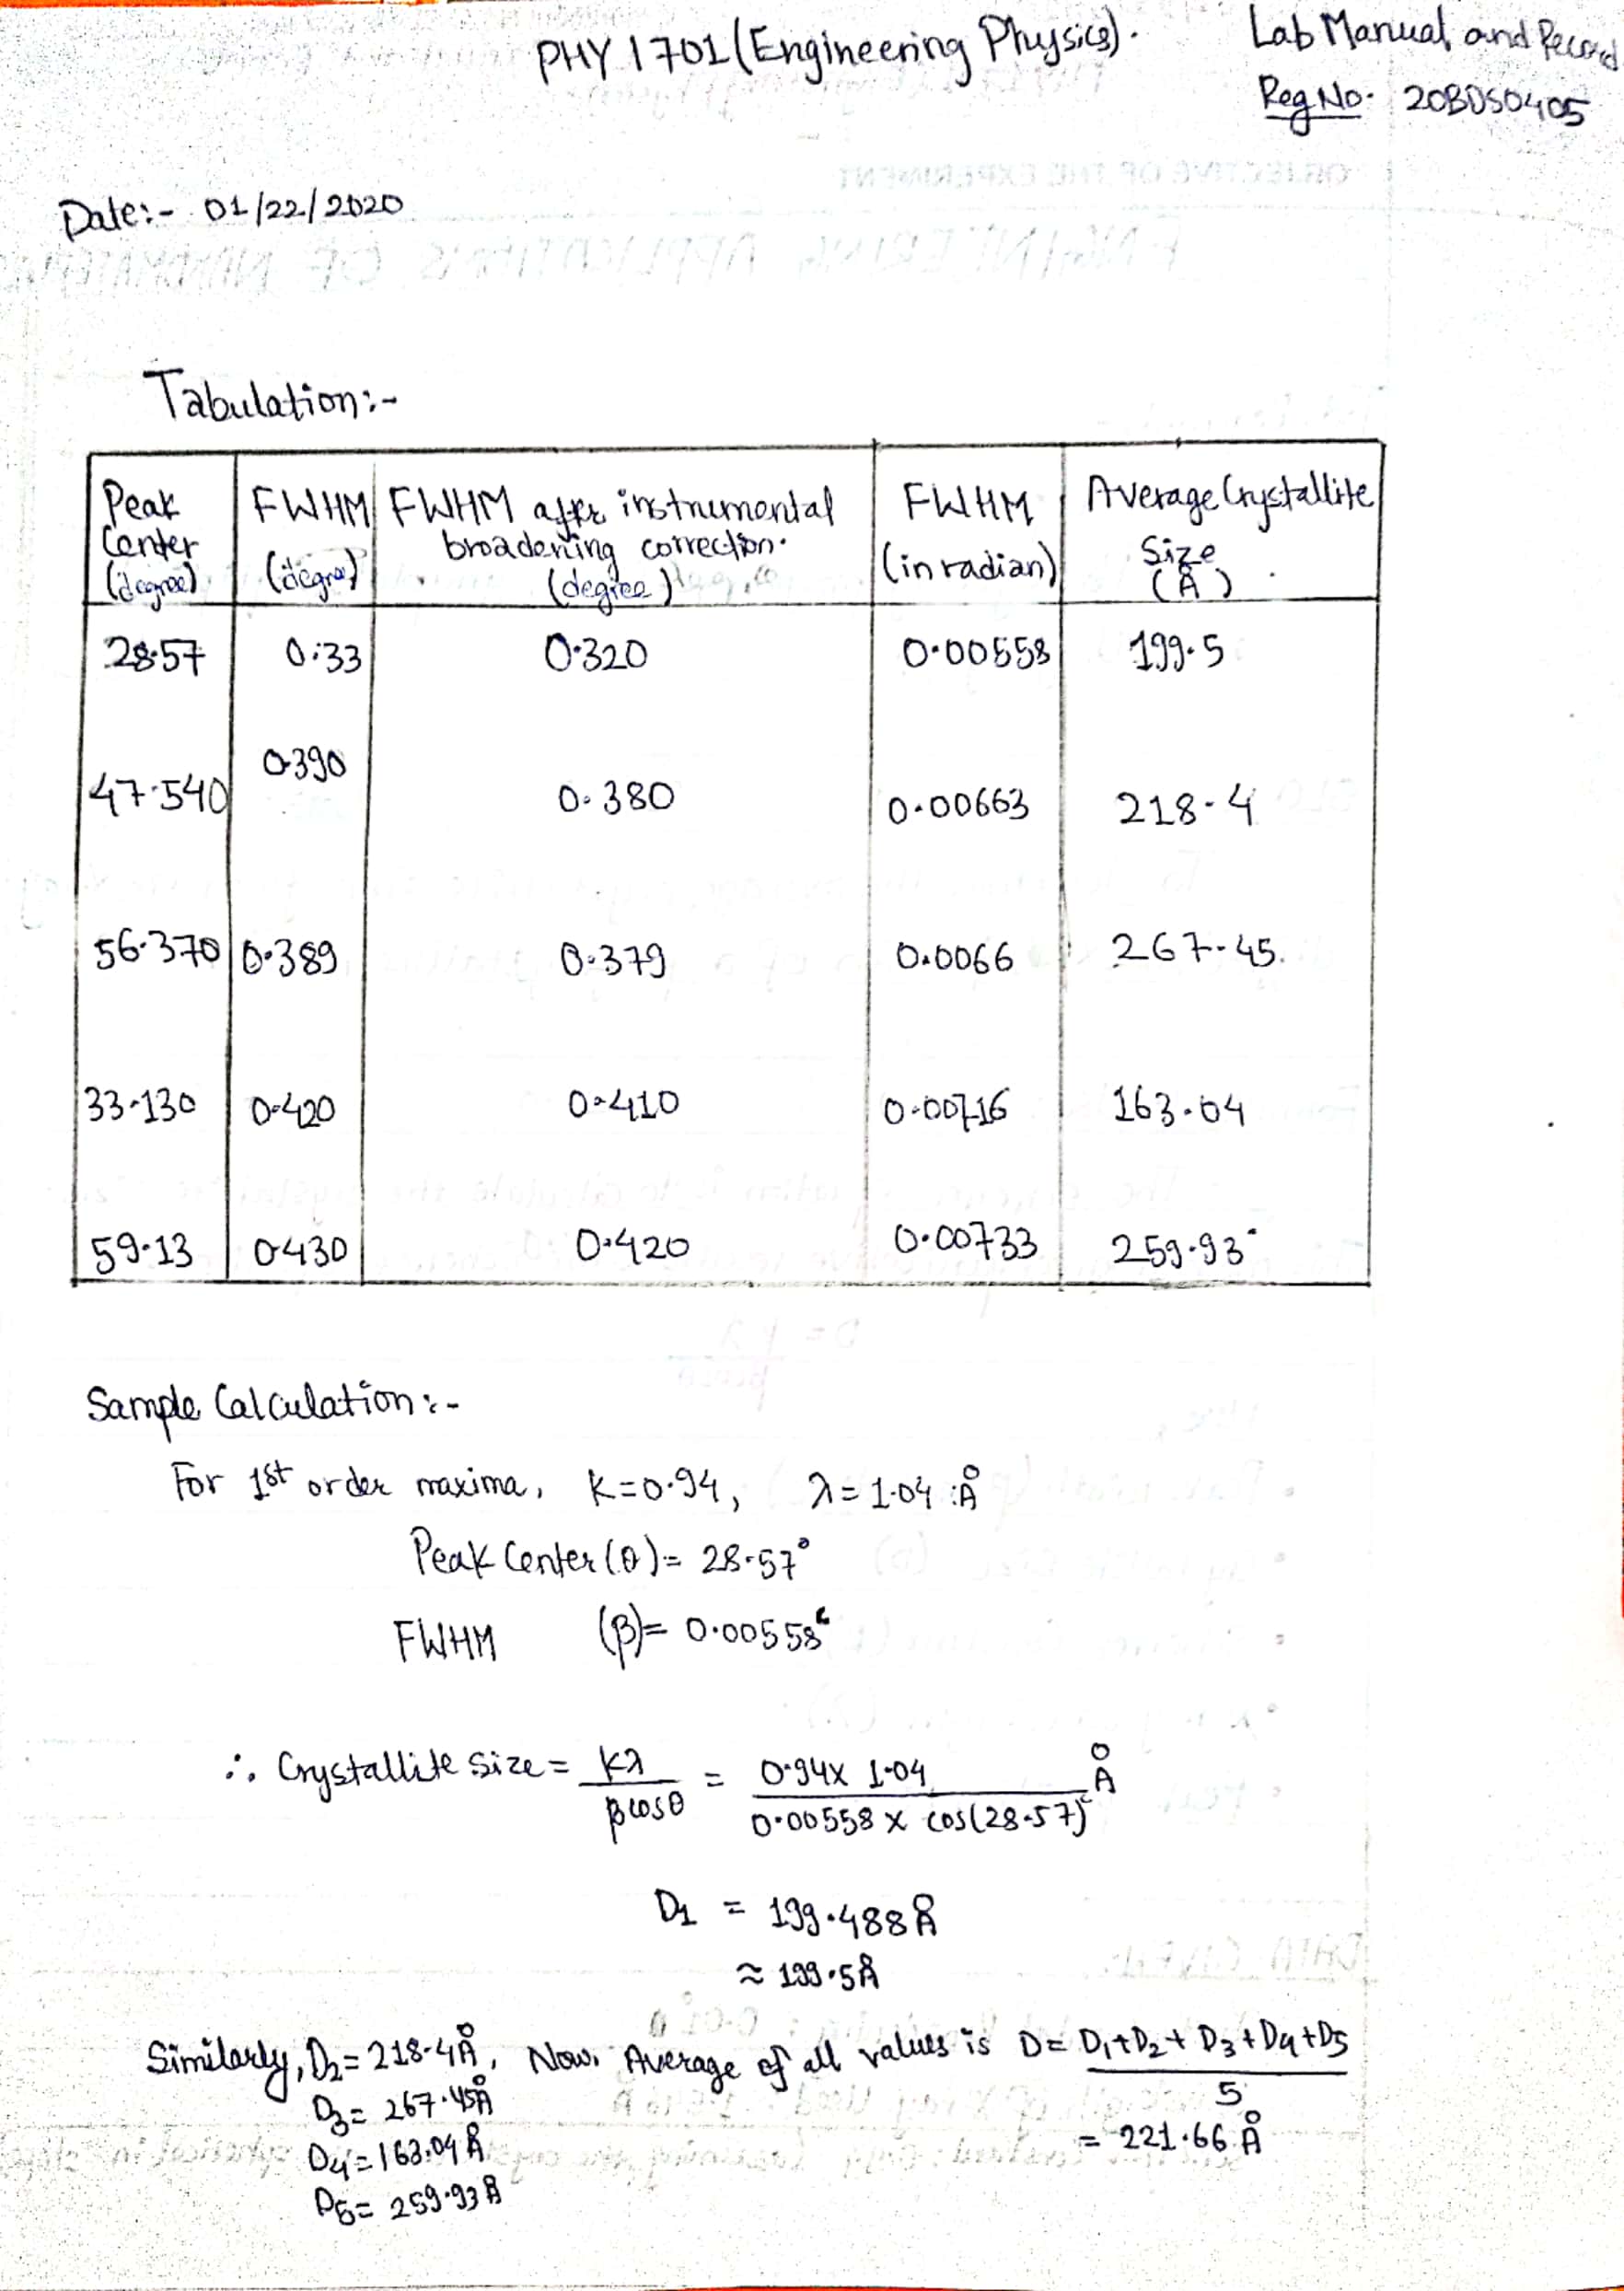 PHY 1701 (Engineering Physics).
Lab Manual and Record
Reg No. 20BDS0405
OBJECTIVE OF THE EXPERIMENT
Date:- 01/22/2020
Tabulation:-
Peak Center (degree) | FWHM (degree) | FWHM after instrumental broadening correction. (degree) | FWHM (in radian) | Average Crystallite Size (Å)
28.57 | 0.33 | 0.320 | 0.00558 | 199.5
47.540 | 0.390 | 0.380 | 0.00663 | 218.4
56.370 | 0.389 | 0.379 | 0.0066 | 267.45.
33.130 | 0.420 | 0.410 | 0.00716 | 163.04
59.13 | 0.430 | 0.420 | 0.00733 | 259.93
Sample Calculation:-
For 1st order maxima, K=0.94, λ = 1.04 Å
Peak Center (θ) = 28.57°
FWHM (β) = 0.00558ᶜ
∴ Crystallite size = Kλ / βcosθ = 0.94 x 1.04 / 0.00558 x cos(28.57)ᶜ Å
D₁ = 199.488 Å
≈ 199.5 Å
Similarly, D₂ = 218.4 Å, Now, Average of all values is D = D₁+D₂+D₃+D₄+D₅ / 5
D₃ = 267.45 Å
= 221.66 Å
D₄ = 163.04 Å
D₅ = 259.93 Å